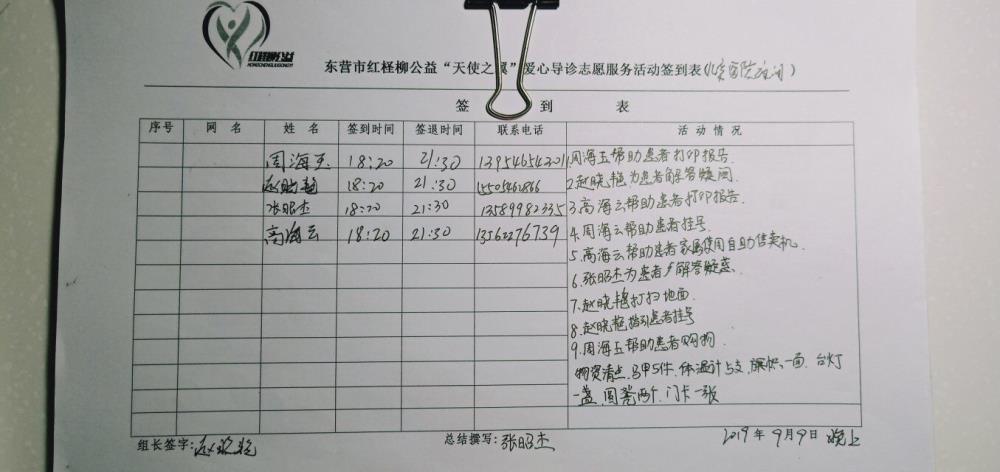 红柽柳公益
HONGCHENGLIUGONGYI
东营市红柽柳公益“天使之翼”爱心导诊志愿服务活动签到表(北京医院夜间)
签 到 表
序号 网 名 姓 名 签到时间 签退时间 联系电话 活动情况
周海玉 18:20 21:30 13954654301
赵晓艳 18:20 21:30 15505462866
张昭杰 18:20 21:30 13589982335
高海云 18:20 21:30 13562276739
1.周海玉帮助患者打印报告.
2.赵晓艳为患者解答疑问
3.高海云帮助患者打印报告.
4.周海云帮助患者挂号.
5.高海云帮助患者家属使用自助售卖机.
6.张昭杰为患者解答疑惑.
7.赵晓艳打扫地面.
8.赵晓艳指引患者挂号
9.周海玉帮助患者购物
物资清点.马甲5件.体温计5支,旗帜一面.台灯
一盏.圆凳两个.门卡一张
组长签字:赵晓艳 总结撰写:张昭杰 2019年9月9日 晚上